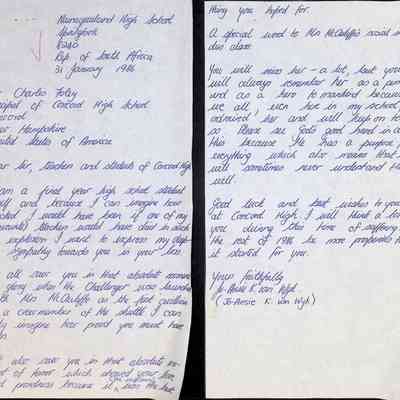 Namaqualand High School
Springbok
8240
Rep of South Africa
31 January 1986
Charles Foley
cipal of Concord High School
oncord
w Hampshire
nited States of America
ear Sir, teachers and students of Concord High
am a final year high school student
self and because I can imagine how
I would have been if one of my
teachers would have died in such
explosion I want to express my deep
sympathy towards you in your loss.
all saw you in that absolute moment
glory when the Challenger was launched
with Mrs McAuliffe as the first civilian
a crewmember of the shuttle. I can
ly imagine how proud you must have
n.
also saw you in that absolute mo-
nt of horror which showed your love
d proudness because it was the last
thing you hoped for.
A special word to Mrs McAuliffe's social
class alone.
You will miss her - a lot, but you
will always remember her as a
and as a hero to mankind because
we all, even here in my school,
admired her and will keep on to
so. Please see God's good hand in
this because He has a purpose
everything which also means that
will sometimes never understand His
will.
Good luck and best wishes to you
at Concord High. I will think a lot
you during this time of suffering.
the rest of 1986 be more prosperous
it started for you.
Yours faithfully
Jo-Ansie K. van Wyk.
(Jo-Ansie K. van Wyk)